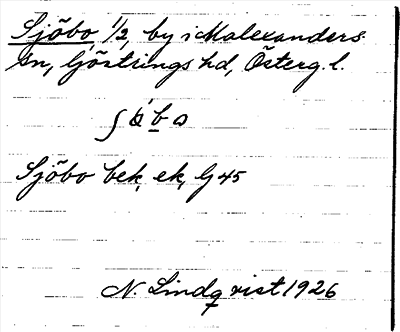 Sjöbo, 1/2, by i Malexanders
sn, Göstrings hd, Österg. l.
Sjöbo bek, ek, G 45
N. Lindqvist 1926